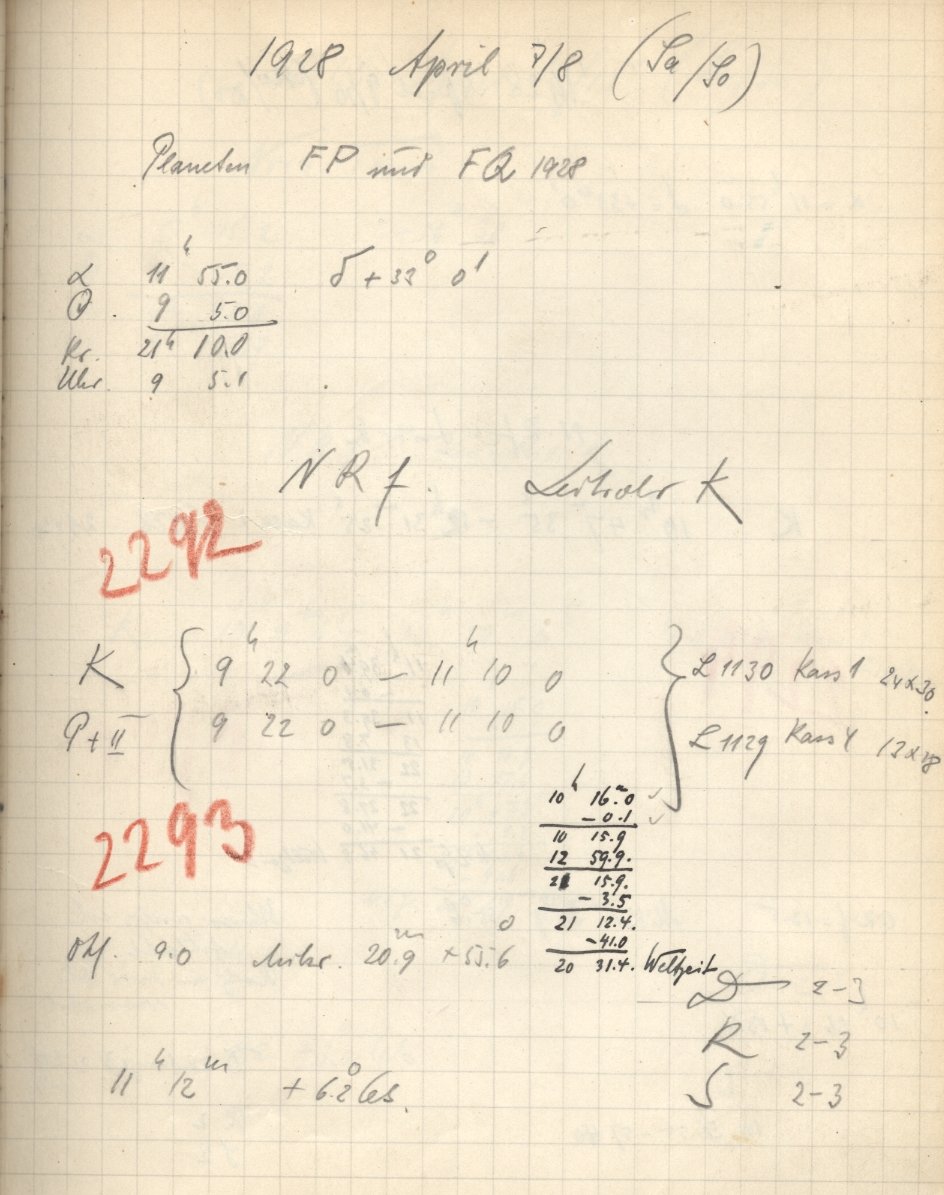 1928 April 7/8 (Sa/So)
Planeten FP und FQ 1928
α 11ʰ 55.0 δ + 33° 0'
Θ. 9 5.0
Kr. 21ʰ 10.0
Uhr. 9 5.1
N R f. Leitrohr K
2292
K { 9ʰ 22 0 — 11ʰ 10 0 } L 1130 Kass 1 24x30.
P+II 9 22 0 — 11 10 0 L 1129 Kass 4 13x18
2293
10ʰ 16.ᵐ0 ✓
- 0.1 ✓
10 15.9
12 59.9.
21 15.9.
- 3.5
21 12.4.
-41.0
20 31.4. Weltzeit
Obj. 9.0 Mikr. 20.ᵐ9 +55.°6
D 2-3
R 2-3
S 2-3
11ʰ 12ᵐ + 6.°2 Cels.